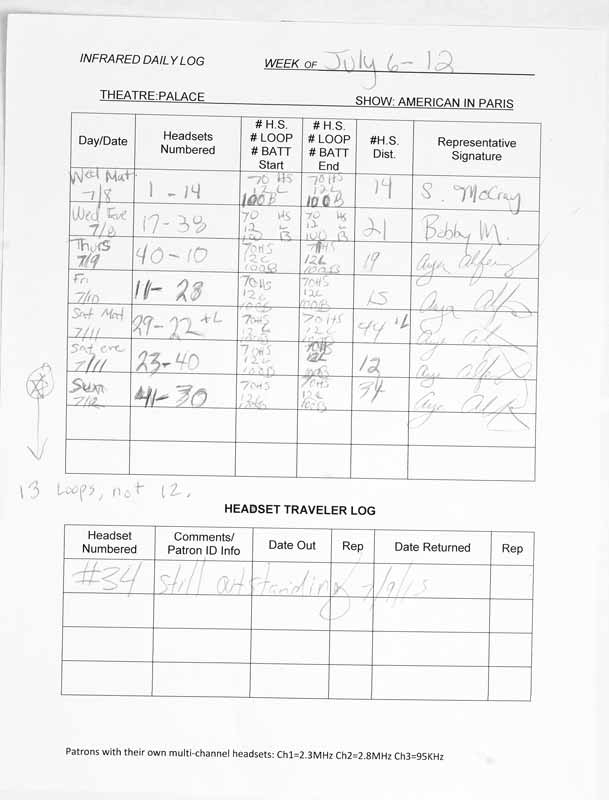 INFRARED DAILY LOG WEEK OF July 6-12
THEATRE:PALACE SHOW: AMERICAN IN PARIS
Day/Date Headsets Numbered # H.S. # LOOP # BATT Start # H.S. # LOOP # BATT End #H.S. Dist. Representative Signature
Wed Mat 7/8 1-14 70 HS 12L 100B 70HS 12L 100B 14 S. McCray
Wed Eve 7/8 17-38 70 HS 12 L 100 B 70 HS 12 L 100 B 21 Bobby M.
Thurs 7/9 40-10 70HS 12L 100B 71HS 12L 100B 19
Fri 7/10 11-28 70HS 12L 100B 70HS 12L 100B 15
Sat Mat 7/11 29-22 +L 70HS 12 L 70HS 12L 44 1L
Sat eve 7/11 23-40 70HS 12L 100B 70HS 12L 100B 12
Sun 7/12 41-30 70HS 70HS 12L 100B 34
13 Loops, not 12.
HEADSET TRAVELER LOG
Headset Numbered Comments/ Patron ID Info Date Out Rep Date Returned Rep
#34 still outstanding 7/9/15
Patrons with their own multi-channel headsets: Ch1=2.3MHz Ch2=2.8MHz Ch3=95KHz